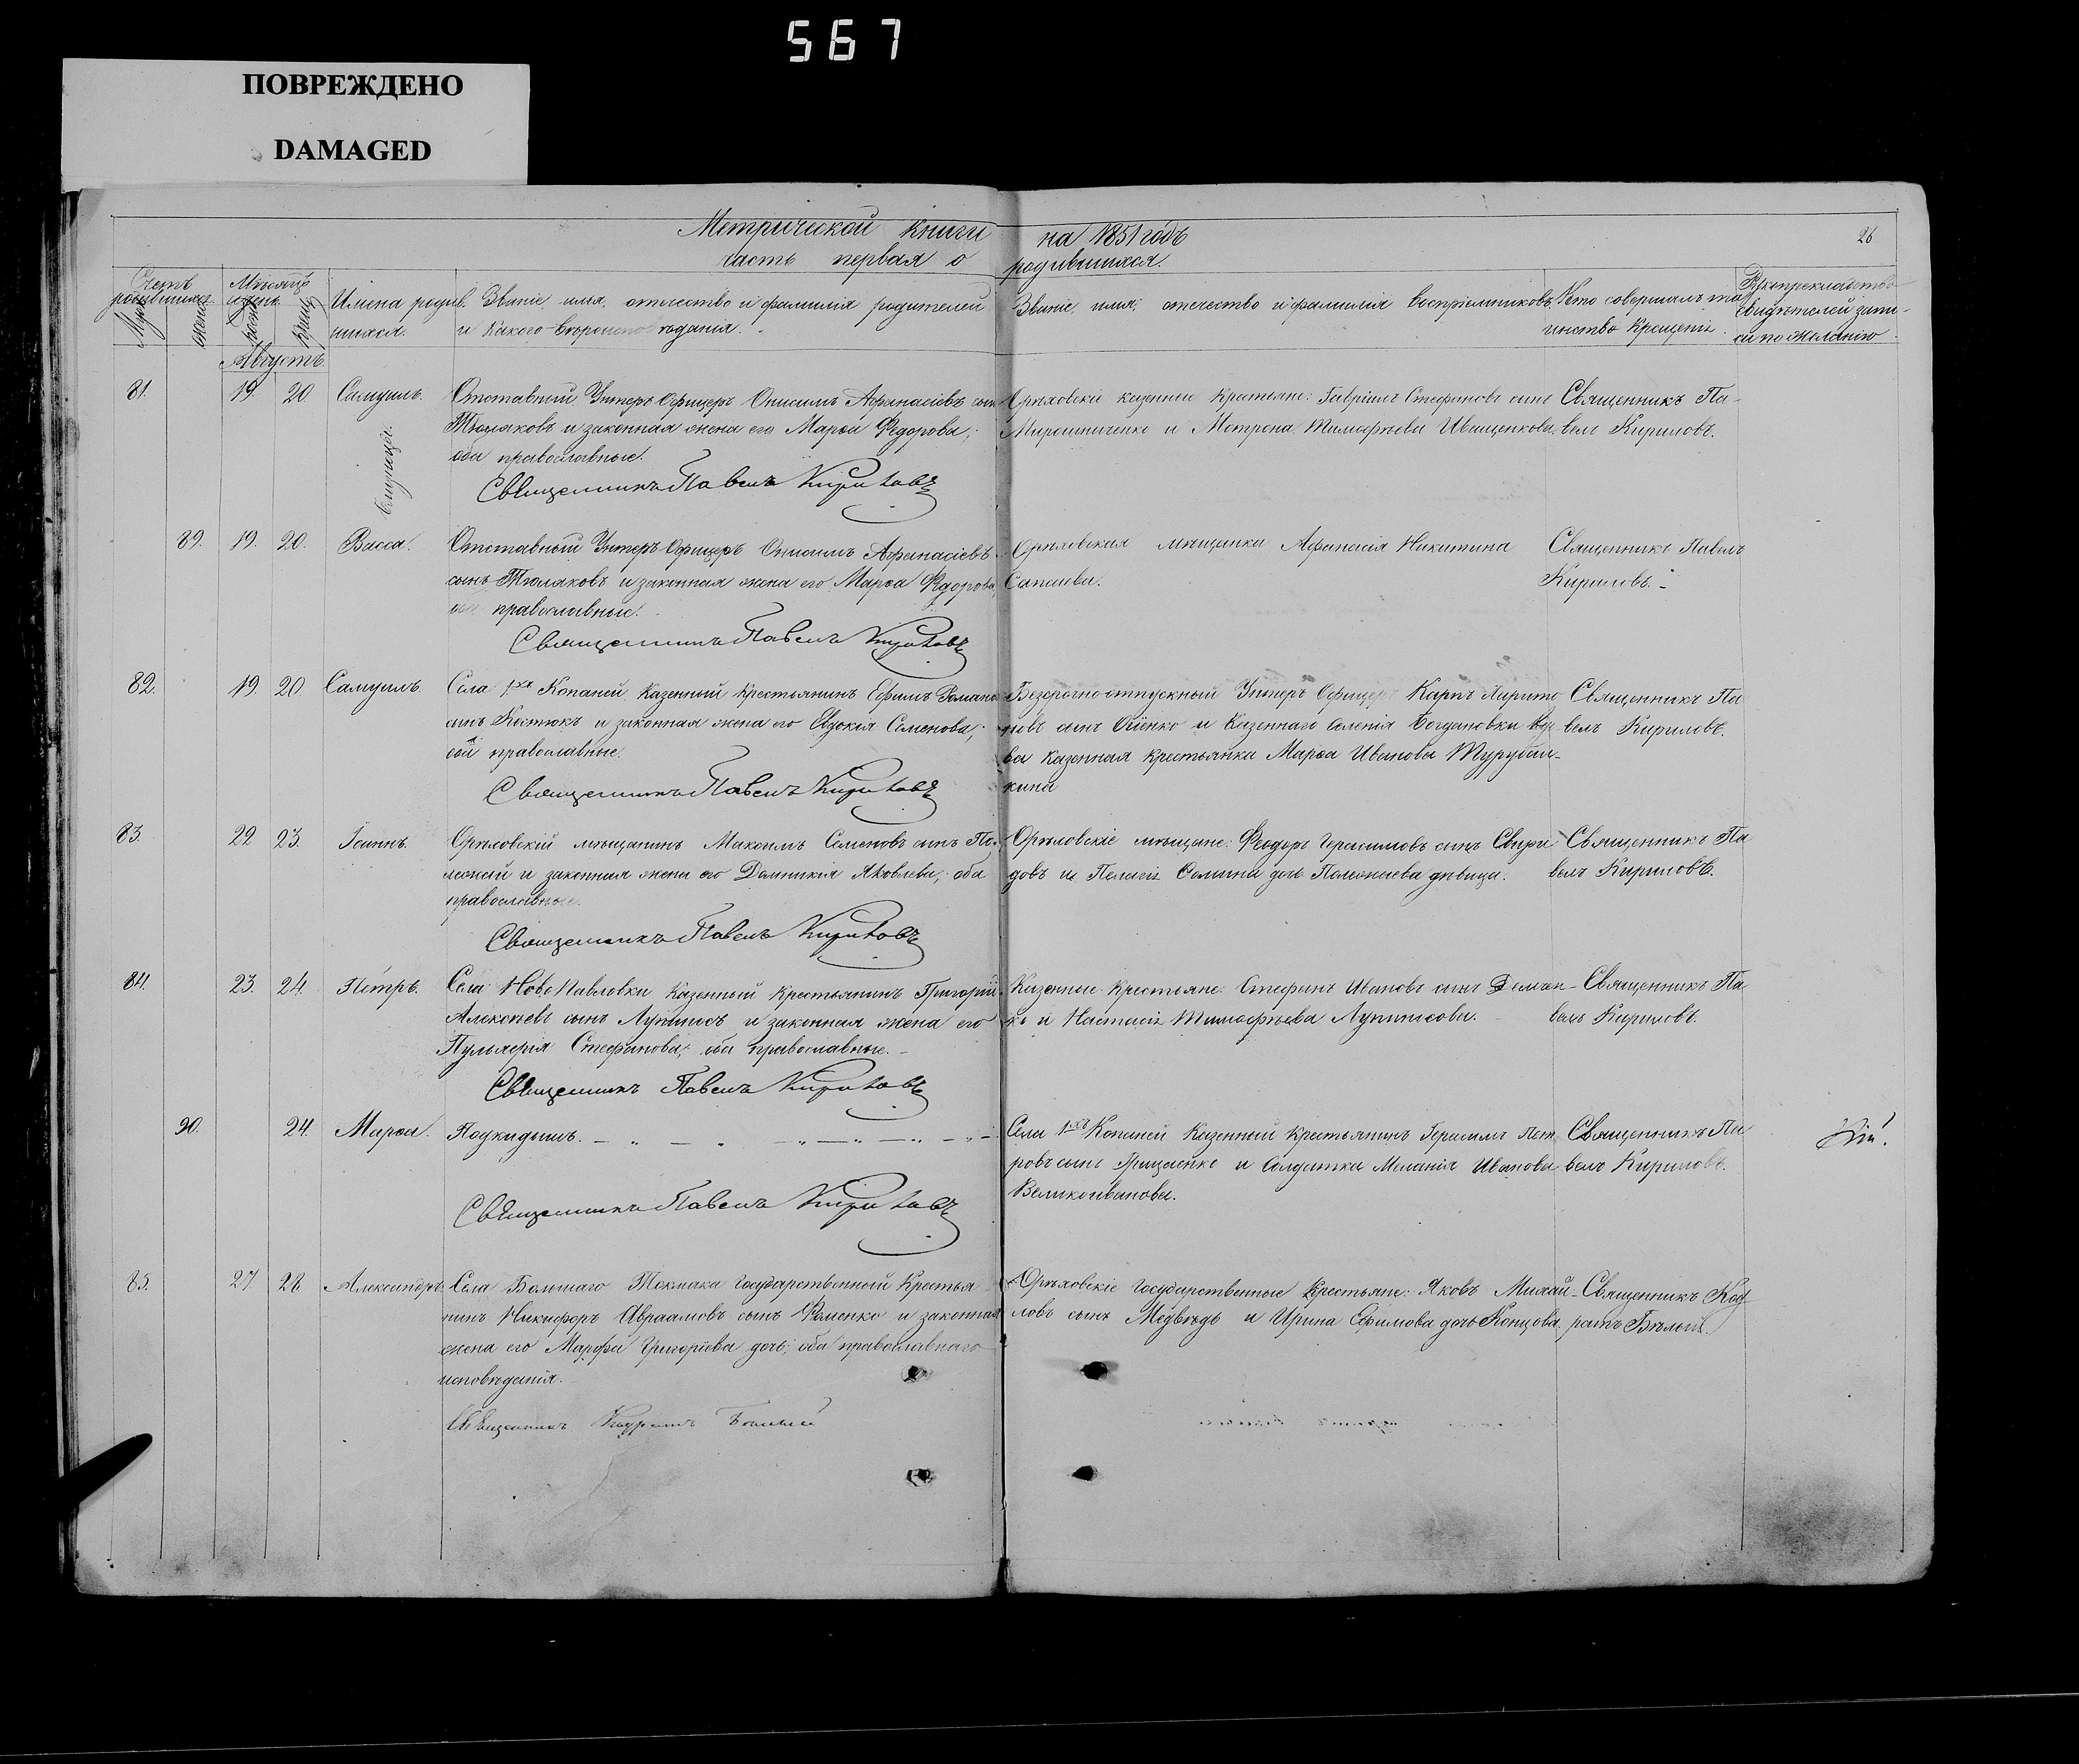 567
ПОВРЕЖДЕНО
DAMAGED
Метрической книги на 1851 годъ
26
часть первая о родившихся.
Счетъ родившихся
Муж.
женс.
Мѣсяцъ и день
рожден.
крещ.
Имена родив-
шихся.
Званіе, имя, отчество и фамилія родителей
и какого вѣроисповѣданія.
Званіе, имя, отчество и фамилія воспріемниковъ.
Кто совершалъ та-
инство крещенія.
Рукоприкладство
свидѣтелей запи-
си по желанію
Августъ.
81. 19. 20. Самуилъ.
Отставный Унтеръ Офицеръ Онисимъ Афанасіевъ сынъ
Тюляковъ и законная жена его Марѳа Ѳедорова,
оба православные.
Священникъ Павелъ Кириловъ
Орѣховскіе казенные крестьяне: Гавріилъ Стефановъ сынъ
Мирошниченко и Мотрона Тимофѣева Иващенкова.
Священникъ Па-
велъ Кириловъ.
89. 19. 20. Васса.
Отставный Унтеръ Офицеръ Онисимъ Афанасіевъ
сынъ Тюляковъ и законная жена его Марѳа Ѳедорова,
православные.
Священникъ Павелъ Кириловъ
Орѣховская мѣщанка Афанасія Никитина
Священникъ Павелъ
Кириловъ.
82. 19. 20. Самуилъ.
Села 1хъ Копаней казенный крестьянинъ Ефимъ Романо
сынъ Костюкъ и законная жена его Евдокія Семенова,
оба православные.
Священникъ Павелъ Кириловъ
Безсрочно-отпускный Унтеръ Офицеръ Карпъ Харито
новъ сынъ и казеннаго селенія Богдановки
ва казенная крестьянка Марѳа Иванова Турубал-
кина
Священникъ Па
велъ Кириловъ.
83. 22 23. Іоаннъ.
Орѣховскій мѣщанинъ Максимъ Семеновъ сынъ По-
лежай и законная жена его Домникія Яковлева, оба
православные.
Священникъ Павелъ Кириловъ
Орѣховскіе мѣщане: Ѳеодоръ Герасимовъ сынъ Свири
довъ и Пелагія Сомина дочь Полежаева дѣвица.
Священникъ Па
велъ Кириловъ.
84. 23. 24. Петръ.
Села Ново Павловки казенный крестьянинъ Григорій
Алексѣевъ сынъ Лупиносъ и законная жена его
Пульхерія Стефанова, оба православные.
Священникъ Павелъ Кириловъ
Казенные крестьяне: Стефанъ Ивановъ сынъ Демчен-
ко и Настасія Тимофѣева Лупиносова.
Священникъ Па
велъ Кириловъ.
90. 24. Марѳа.
Подкидышъ.
Священникъ Павелъ Кириловъ
Села 1хъ Копаней казенный крестьянинъ Герасимъ Пет
ровъ сынъ Грищенко и солдатка Меланія Иванова
Великоиванова.
Священникъ Па
велъ Кириловъ.
85. 27 28 Александръ.
Села Большаго Токмака государственный крестья
нинъ Никифоръ Авраамовъ сынъ Фоменко и законная
жена его Марфа Григоріева дочь; оба православнаго
исповѣданія.
Священникъ Кодратъ Бѣлый
Орѣховскіе государственные крестьяне: Яковъ Михай-
ловъ сынъ Медвѣдь и Ирина Ефимова дочь Концова.
Священникъ Код
ратъ Бѣлый.